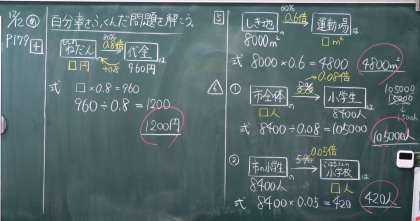 12/12
P179 4
百分率をつくんだ問題を解こう。
ねだん
代金
0.8倍
÷0.8
□円
960円
は
式 □×0.8=960
960÷0.8=1200
1200円
5
60%
0.6倍
しき地 の
運動場 は
8000m²
□m²
式 8000×0.6=4800
4800m²
6
① 市全体 の
8%
0.08倍
小学生 は
□人
8400人
式 8400÷0.08=105000
105000人
② 市の小学生 の
5%
0.05倍
小学校 は
8400人
□人
式 8400×0.05=420
420人